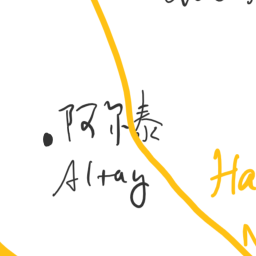 阿尔泰
Altay
Ha